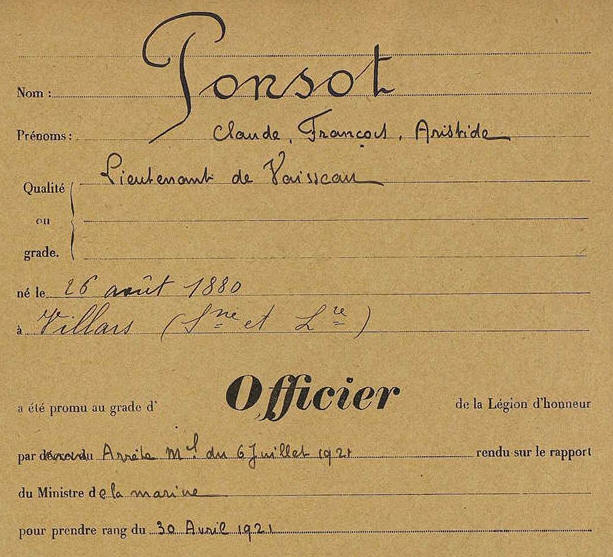 Nom : Ponsot
Prénoms : Claude, François, Aristide
Qualité Lieutenant de Vaisseau
ou
grade.
né le 26 août 1880
à Villars (Sne et Lre)
a été promu au grade d' Officier de la Légion d'honneur
par décret du Arrêté Ml du 6 Juillet 1921 rendu sur le rapport
du Ministre de la marine
pour prendre rang du 30 Avril 1921